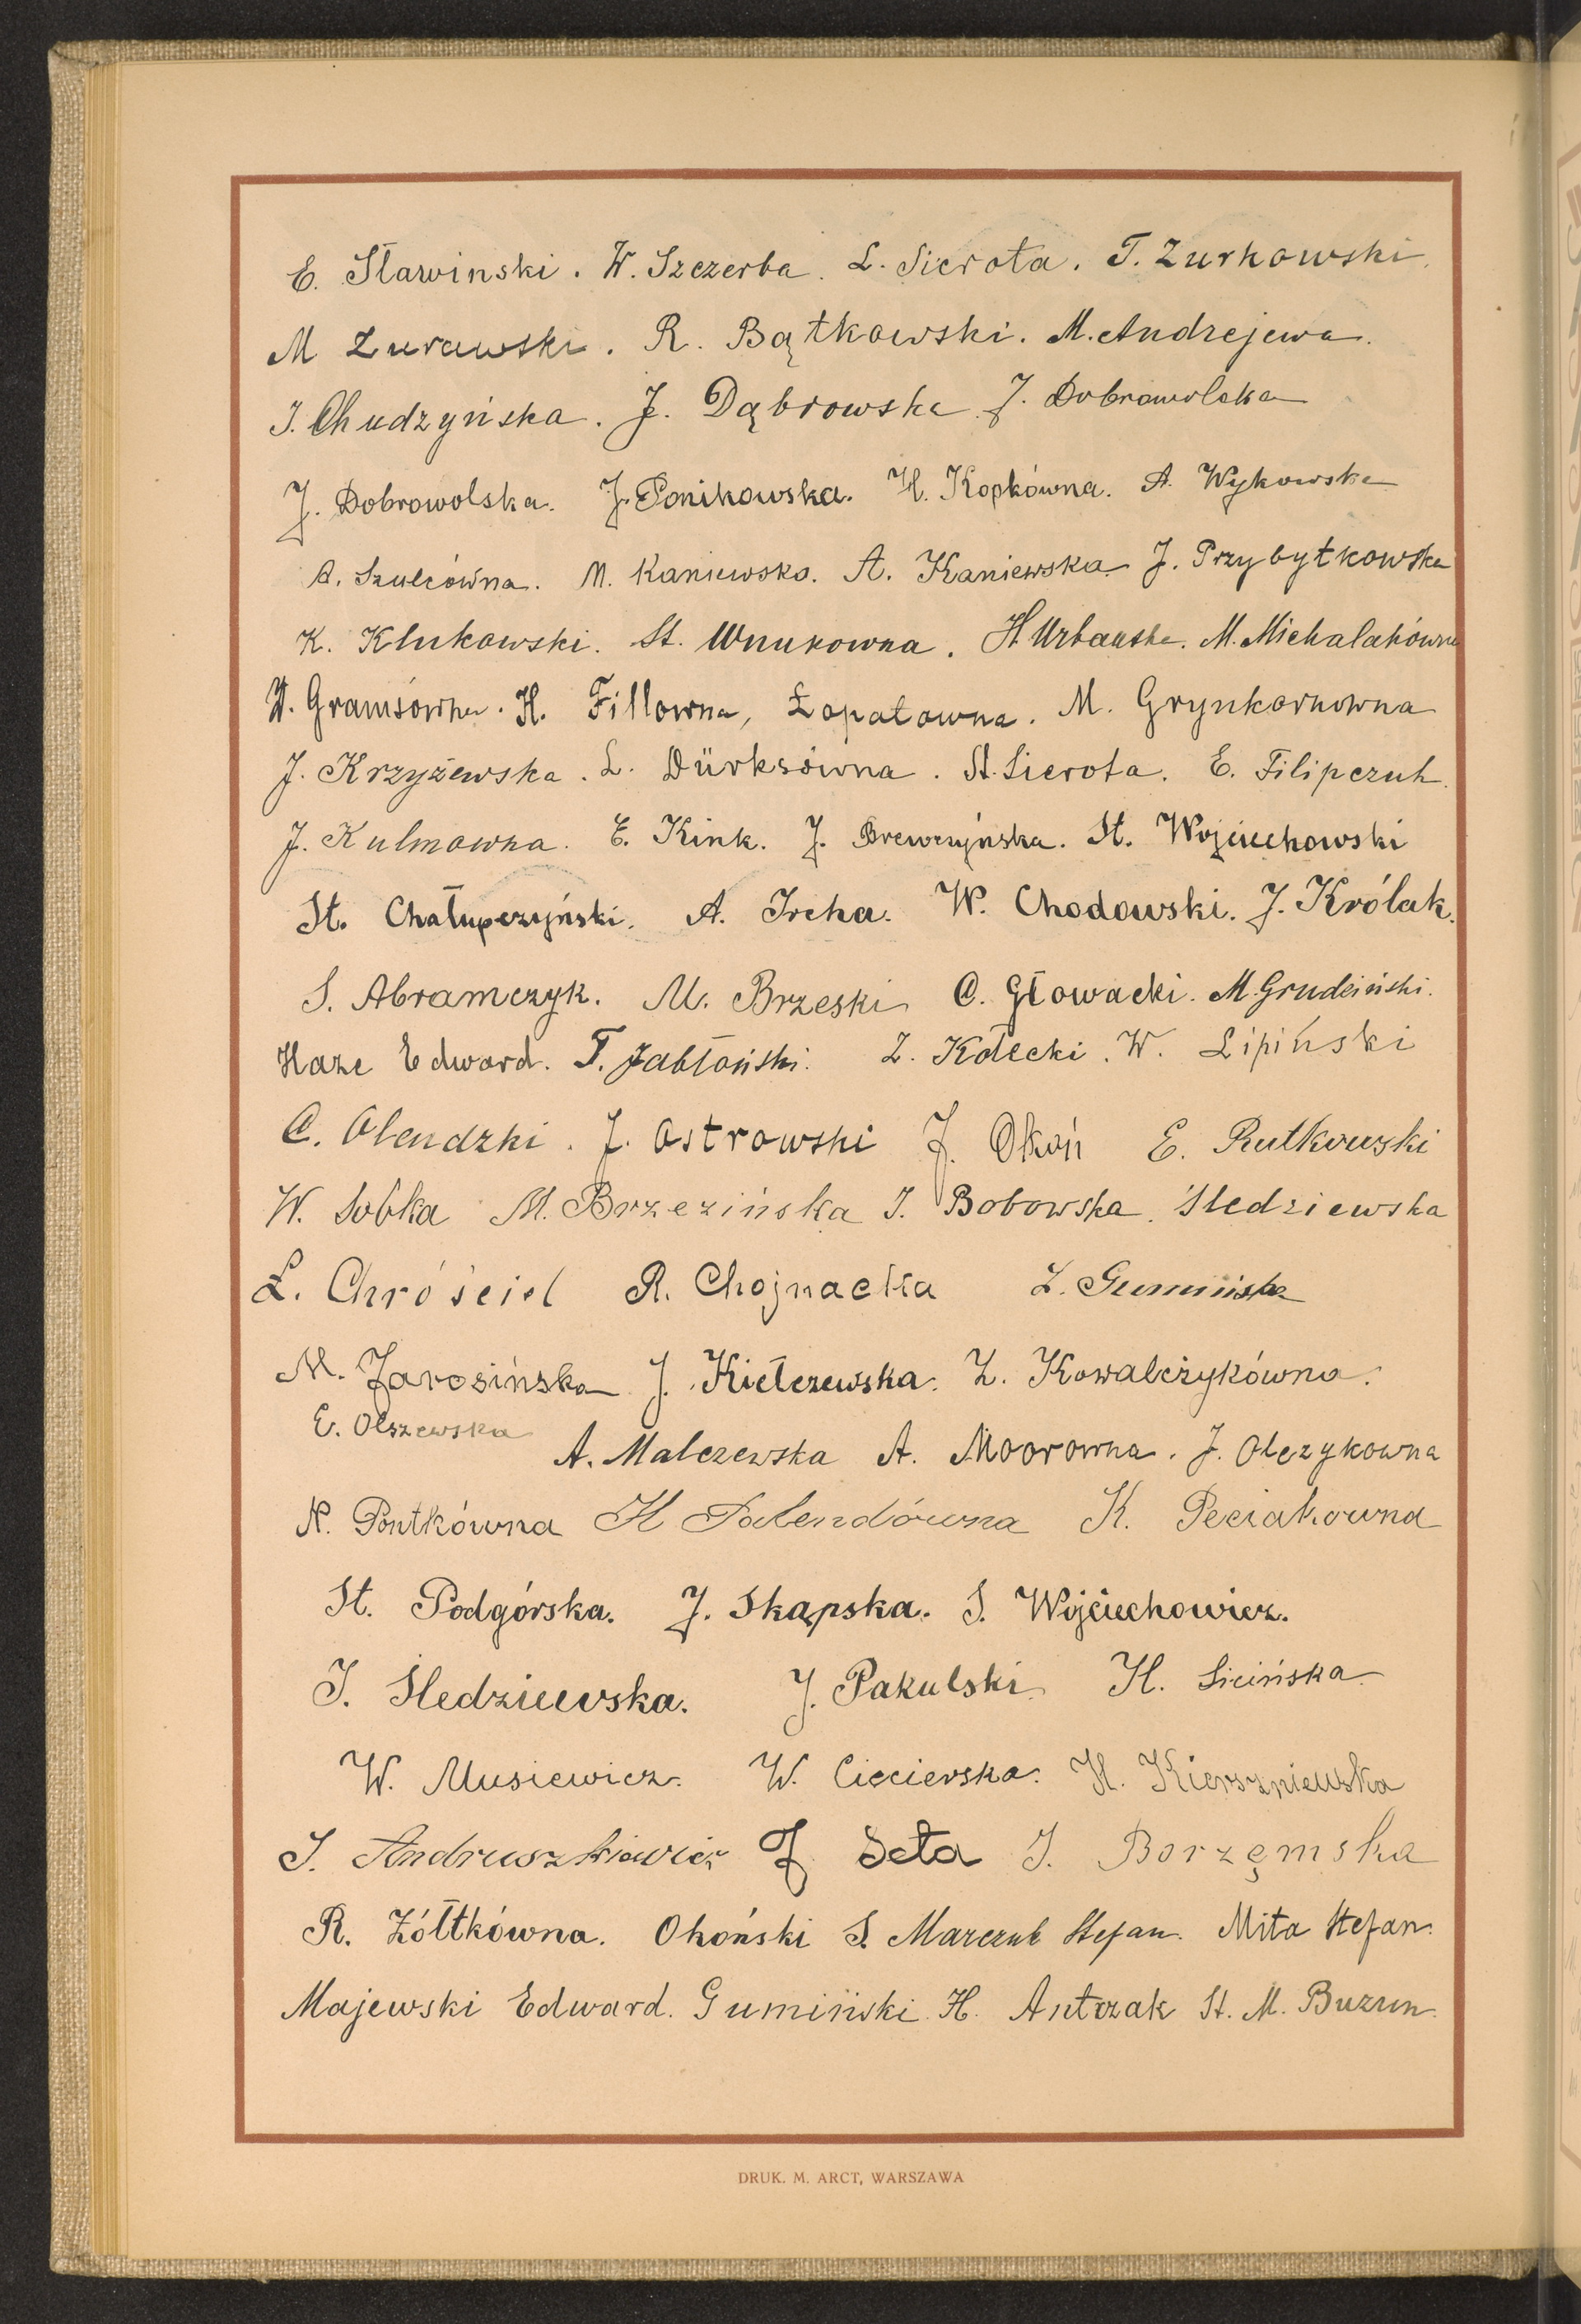 E. Sławinski. W. Szczerba. L. Sierota. T. Zurkowski.
M Zurawski. R. Bątkowski. M. Andrejewa.
J. Chudzyńska. J. Dąbrowska J. Dobrowolska
J. Dobrowolska. J. Ponikowska. H. Kopkówna. A. Wykowska
A. Szulcówna. M. Kaniewska. A. Kaniewska J. Przybytkowska
K. Klukowski. St. Wnukowna. H. Urbańska. M. Michalakówna
H. Fillowna, Łopatowna. M. Grynkornowna
J. Krzyżewska. L. Dürksówna. St. Sierota. E. Filipczuk.
J. Kulmowna. E. Kink. J. Brewczyńska. St. Wojciechowski
St. Chałupczyński. A. Ircha. W. Chodowski. J. Królak.
S. Abramczyk. M. Brzeski C. Głowacki. M. Grudziński.
Haze Edward. T. Jabłoński. Z. Kołecki. W. Lipiński
C. Olendzki. J. Ostrowski J. Okoń E. Rutkowski
W. Sobka M. Brzezińska J. Bobowska. Śledziewska
L. Chróściel R. Chojnacka Z. Gumińska
M. Jarosińska J. Kiełczewska. Z. Kowalczykówna.
E. Olszewska A. Malczewska A. Moorowna. J. Olczykowna
N. Pontkówna H Palendówna K. Peciakowna
St. Podgórska. J. Skąpska. S. Wojciechowicz.
J. Śledziewska. J. Pakulski H. Sicińska
W. Musiewicz. W. Ciecierska. H. Kierszniewska
J. Andruszkiewicz J Seta J. Borzęmska
R. Żółtkówna. Okoński S. Marczuk Stefan. Mita Stefan.
Majewski Edward. Gumiński H. Antczak St. M. Buzun.
DRUK. M. ARCT, WARSZAWA